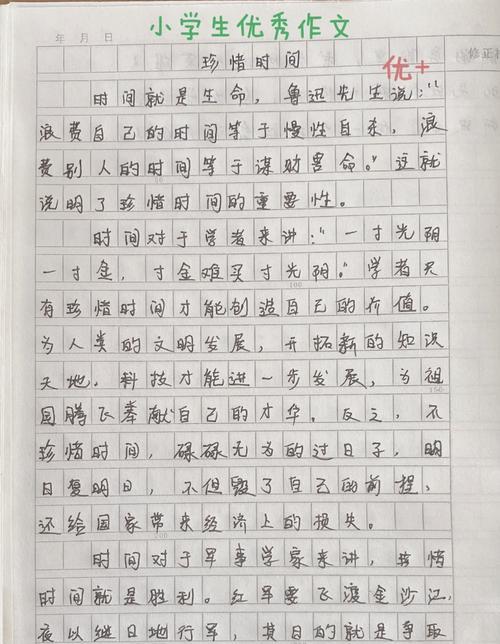 小学生优秀作文
年 月 日
修正栏
珍惜时间
优+
时间就是生命，鲁迅先生说：“
浪费自己的时间等于慢性自杀，浪
费别人的时间等于谋财害命。”这就
说明了珍惜时间的重要性。
时间对于学者来讲：“一寸光阴
一寸金，寸金难买寸光阴。”学者只
有珍惜时间才能创造自己的价值。
100
为人类的文明发展，开拓新的知识
天地.科技才能进一步发展，为祖
国腾飞奉献自己的才华。反之，不
珍惜时间，碌碌无为的过日子，明
日复明日，不但毁了自己的前程，
还给国家带来经济上的损失。
200
时间对于军事学家来讲，珍惜
时间就是胜利。红军要飞渡金沙江，
夜以继日地行军，其目的就是争取